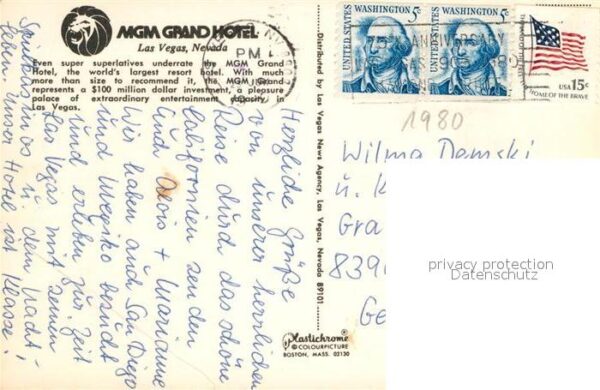 MGM GRAND HOTEL
Las Vegas, Nevada
Even super superlatives underrate the MGM Grand
Hotel, the world's largest resort hotel. With much
more than size to recommend it, the MGM Grand
represents a $100 million dollar investment, a pleasure
palace of extraordinary entertainment capacity, in
Las Vegas.
Herzliche Grüße
von unserer herrlichen
Reise durch das schöne
Californien senden
Euch Alois + Marianne
Wir haben auch San Diego
und Mexiko besucht
und erleben zur Zeit
Las Vegas mit seinen
Spielcasinos u. dem Nacht-
leben. Unser Hotel ist Klasse!
Distributed by Las Vegas News Agency, Las Vegas, Nevada 89101
Plastichrome
© COLOURPICTURE
BOSTON, MASS. 02130
UNITED STATES
WASHINGTON
5c
UNITED STATES
WASHINGTON
5c
USA 15c
HOME OF THE BRAVE
PM
75th ANNIVERSARY
1905
1980
Wilma Demski
u. K
Gra
839
Ge
privacy protection
Datenschutz